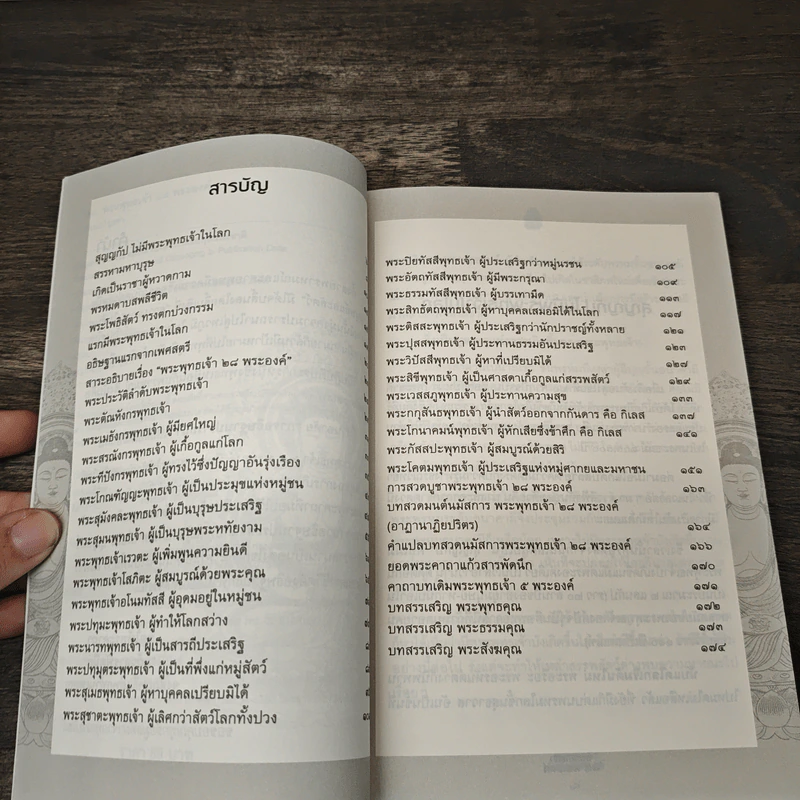 สารบัญ
สุญญกัป ไม่มีพระพุทธเจ้าในโลก
สรรหามหาบุรุษ
เกิดเป็นราชาผู้หวาดกาม
พรหมดาบสพลีชีวิต
พระโพธิสัตว์ ทรงตกบ่วงกรรม
แรกมีพระพุทธเจ้าในโลก
อธิษฐานแรกจากเพศสตรี
สาระอธิบายเรื่อง "พระพุทธเจ้า ๒๘ พระองค์"
พระประวัติลำดับพระพุทธเจ้า
พระตัณหังกรพุทธเจ้า
พระเมธังกรพุทธเจ้า ผู้มียศใหญ่
พระสรณังกรพุทธเจ้า ผู้เกื้อกูลแก่โลก
พระทีปังกรพุทธเจ้า ผู้ทรงไว้ซึ่งปัญญาอันรุ่งเรือง
พระโกณฑัญญะพุทธเจ้า ผู้เป็นประมุขแห่งหมู่ชน
พระสุมังคละพุทธเจ้า ผู้เป็นบุรุษประเสริฐ
พระสุมนพุทธเจ้า ผู้เป็นบุรุษพระหทัยงาม
พระพุทธเจ้าเรวตะ ผู้เพิ่มพูนความยินดี
พระพุทธเจ้าโสภิตะ ผู้สมบูรณ์ด้วยพระคุณ
พระพุทธเจ้าอโนมทัสสี ผู้อุดมอยู่ในหมู่ชน
พระปทุมะพุทธเจ้า ผู้ทำให้โลกสว่าง
พระนารทพุทธเจ้า ผู้เป็นสารถีประเสริฐ
พระปทุมุตระพุทธเจ้า ผู้เป็นที่พึ่งแก่หมู่สัตว์
พระสุเมธพุทธเจ้า ผู้หาบุคคลเปรียบมิได้
พระสุชาตะพุทธเจ้า ผู้เลิศกว่าสัตว์โลกทั้งปวง
พระปิยทัสสีพุทธเจ้า ผู้ประเสริฐกว่าหมู่นรชน ๑๐๕
พระอัตถทัสสีพุทธเจ้า ผู้มีพระกรุณา ๑๐๙
พระธรรมทัสสีพุทธเจ้า ผู้บรรเทามืด ๑๑๓
พระสิทธัตถพุทธเจ้า ผู้หาบุคคลเสมอมิได้ในโลก ๑๑๗
พระติสสะพุทธเจ้า ผู้ประเสริฐกว่านักปราชญ์ทั้งหลาย ๑๒๑
พระปุสสพุทธเจ้า ผู้ประทานธรรมอันประเสริฐ ๑๒๓
พระวิปัสสีพุทธเจ้า ผู้หาที่เปรียบมิได้ ๑๒๗
พระสิขีพุทธเจ้า ผู้เป็นศาสดาเกื้อกูลแก่สรรพสัตว์ ๑๒๙
พระเวสสภูพุทธเจ้า ผู้ประทานความสุข ๑๓๓
พระกกุสันธพุทธเจ้า ผู้นำสัตว์ออกจากกันดาร คือ กิเลส ๑๓๗
พระโกนาคมน์พุทธเจ้า ผู้หักเสียซึ่งข้าศึก คือ กิเลส ๑๔๑
พระกัสสปะพุทธเจ้า ผู้สมบูรณ์ด้วยสิริ
พระโคตมพุทธเจ้า ผู้ประเสริฐแห่งหมู่ศากยและมหาชน ๑๕๑
การสวดบูชาพระพุทธเจ้า ๒๘ พระองค์ ๑๖๓
บทสวดมนต์นมัสการ พระพุทธเจ้า ๒๘ พระองค์
(อาฏานาฏิยปริตร) ๑๖๔
คำแปลบทสวดนมัสการพระพุทธเจ้า ๒๘ พระองค์ ๑๖๖
ยอดพระคาถาแก้วสารพัดนึก ๑๗๐
คาถาบทเดิมพระพุทธเจ้า ๕ พระองค์ ๑๗๑
บทสรรเสริญ พระพุทธคุณ ๑๗๒
บทสรรเสริญ พระธรรมคุณ ๑๗๓
บทสรรเสริญ พระสังฆคุณ ๑๗๔